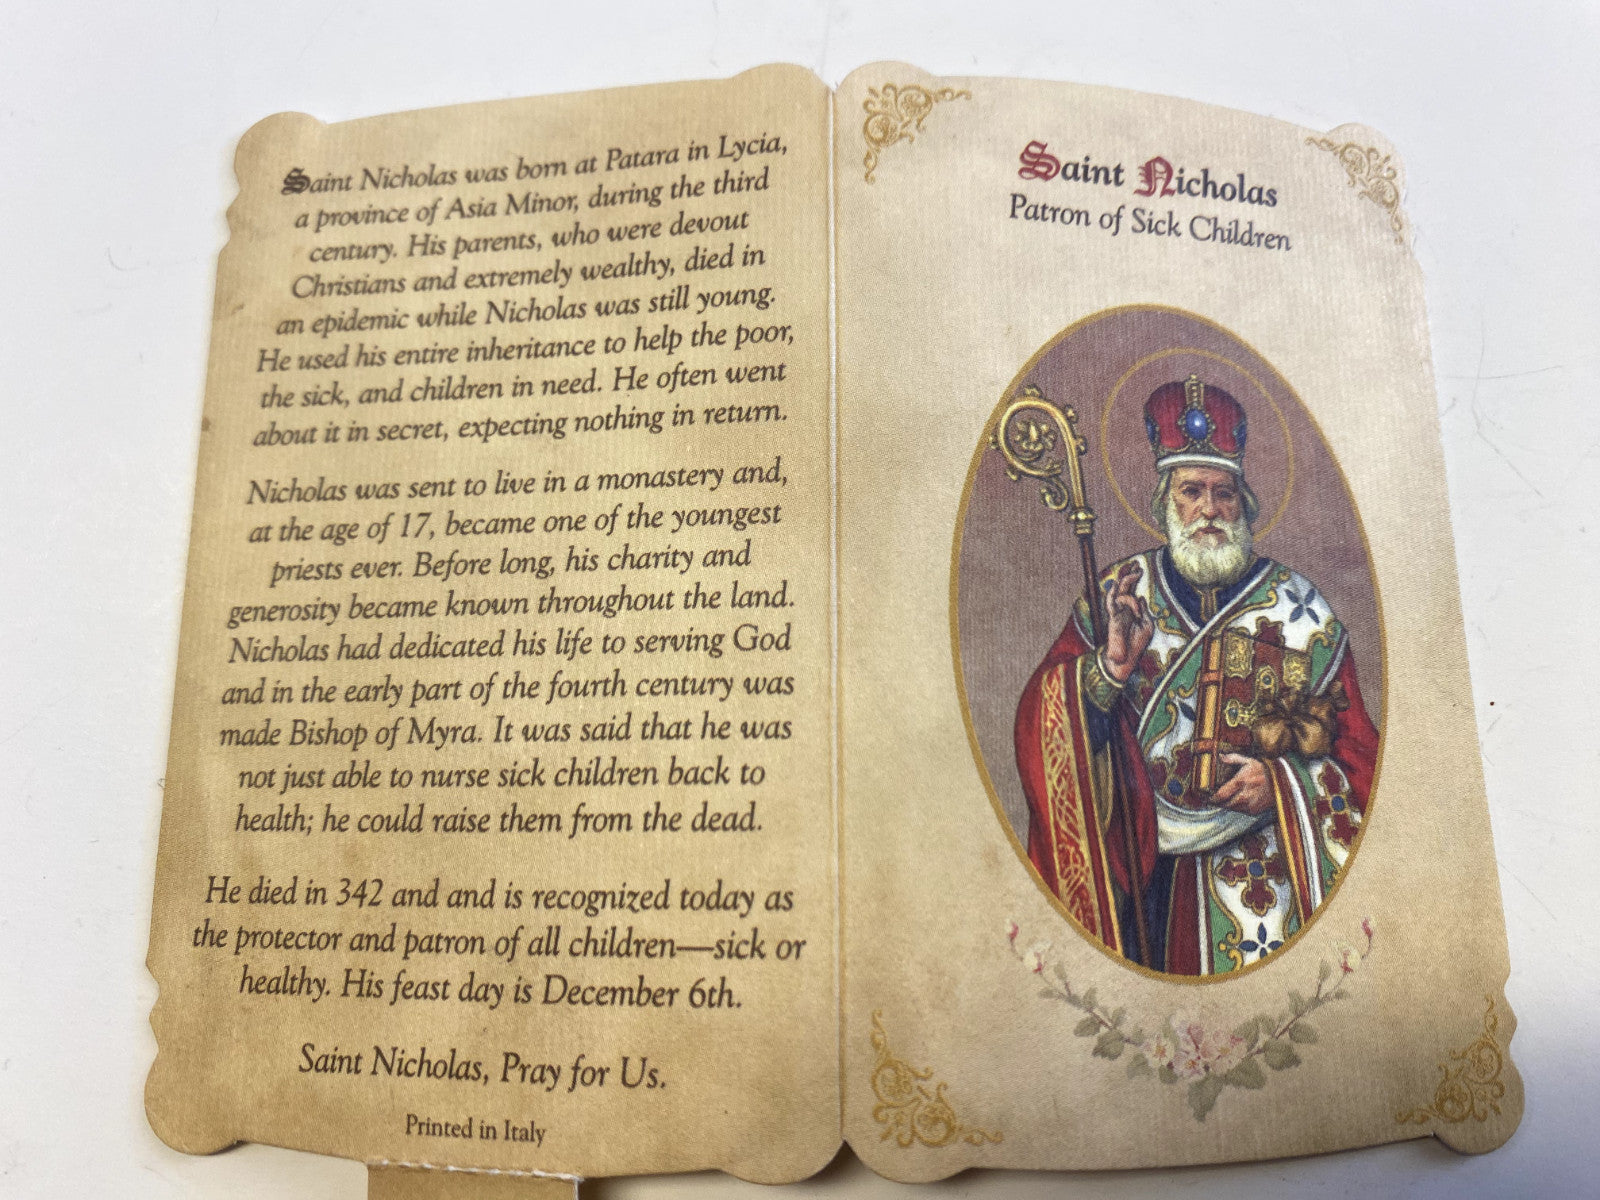 Saint Nicholas was born at Patara in Lycia,
a province of Asia Minor, during the third
century. His parents, who were devout
Christians and extremely wealthy, died in
an epidemic while Nicholas was still young.
He used his entire inheritance to help the poor,
the sick, and children in need. He often went
about it in secret, expecting nothing in return.
Nicholas was sent to live in a monastery and,
at the age of 17, became one of the youngest
priests ever. Before long, his charity and
generosity became known throughout the land.
Nicholas had dedicated his life to serving God
and in the early part of the fourth century was
made Bishop of Myra. It was said that he was
not just able to nurse sick children back to
health; he could raise them from the dead.
He died in 342 and and is recognized today as
the protector and patron of all children—sick or
healthy. His feast day is December 6th.
Saint Nicholas, Pray for Us.
Printed in Italy
Saint Nicholas
Patron of Sick Children